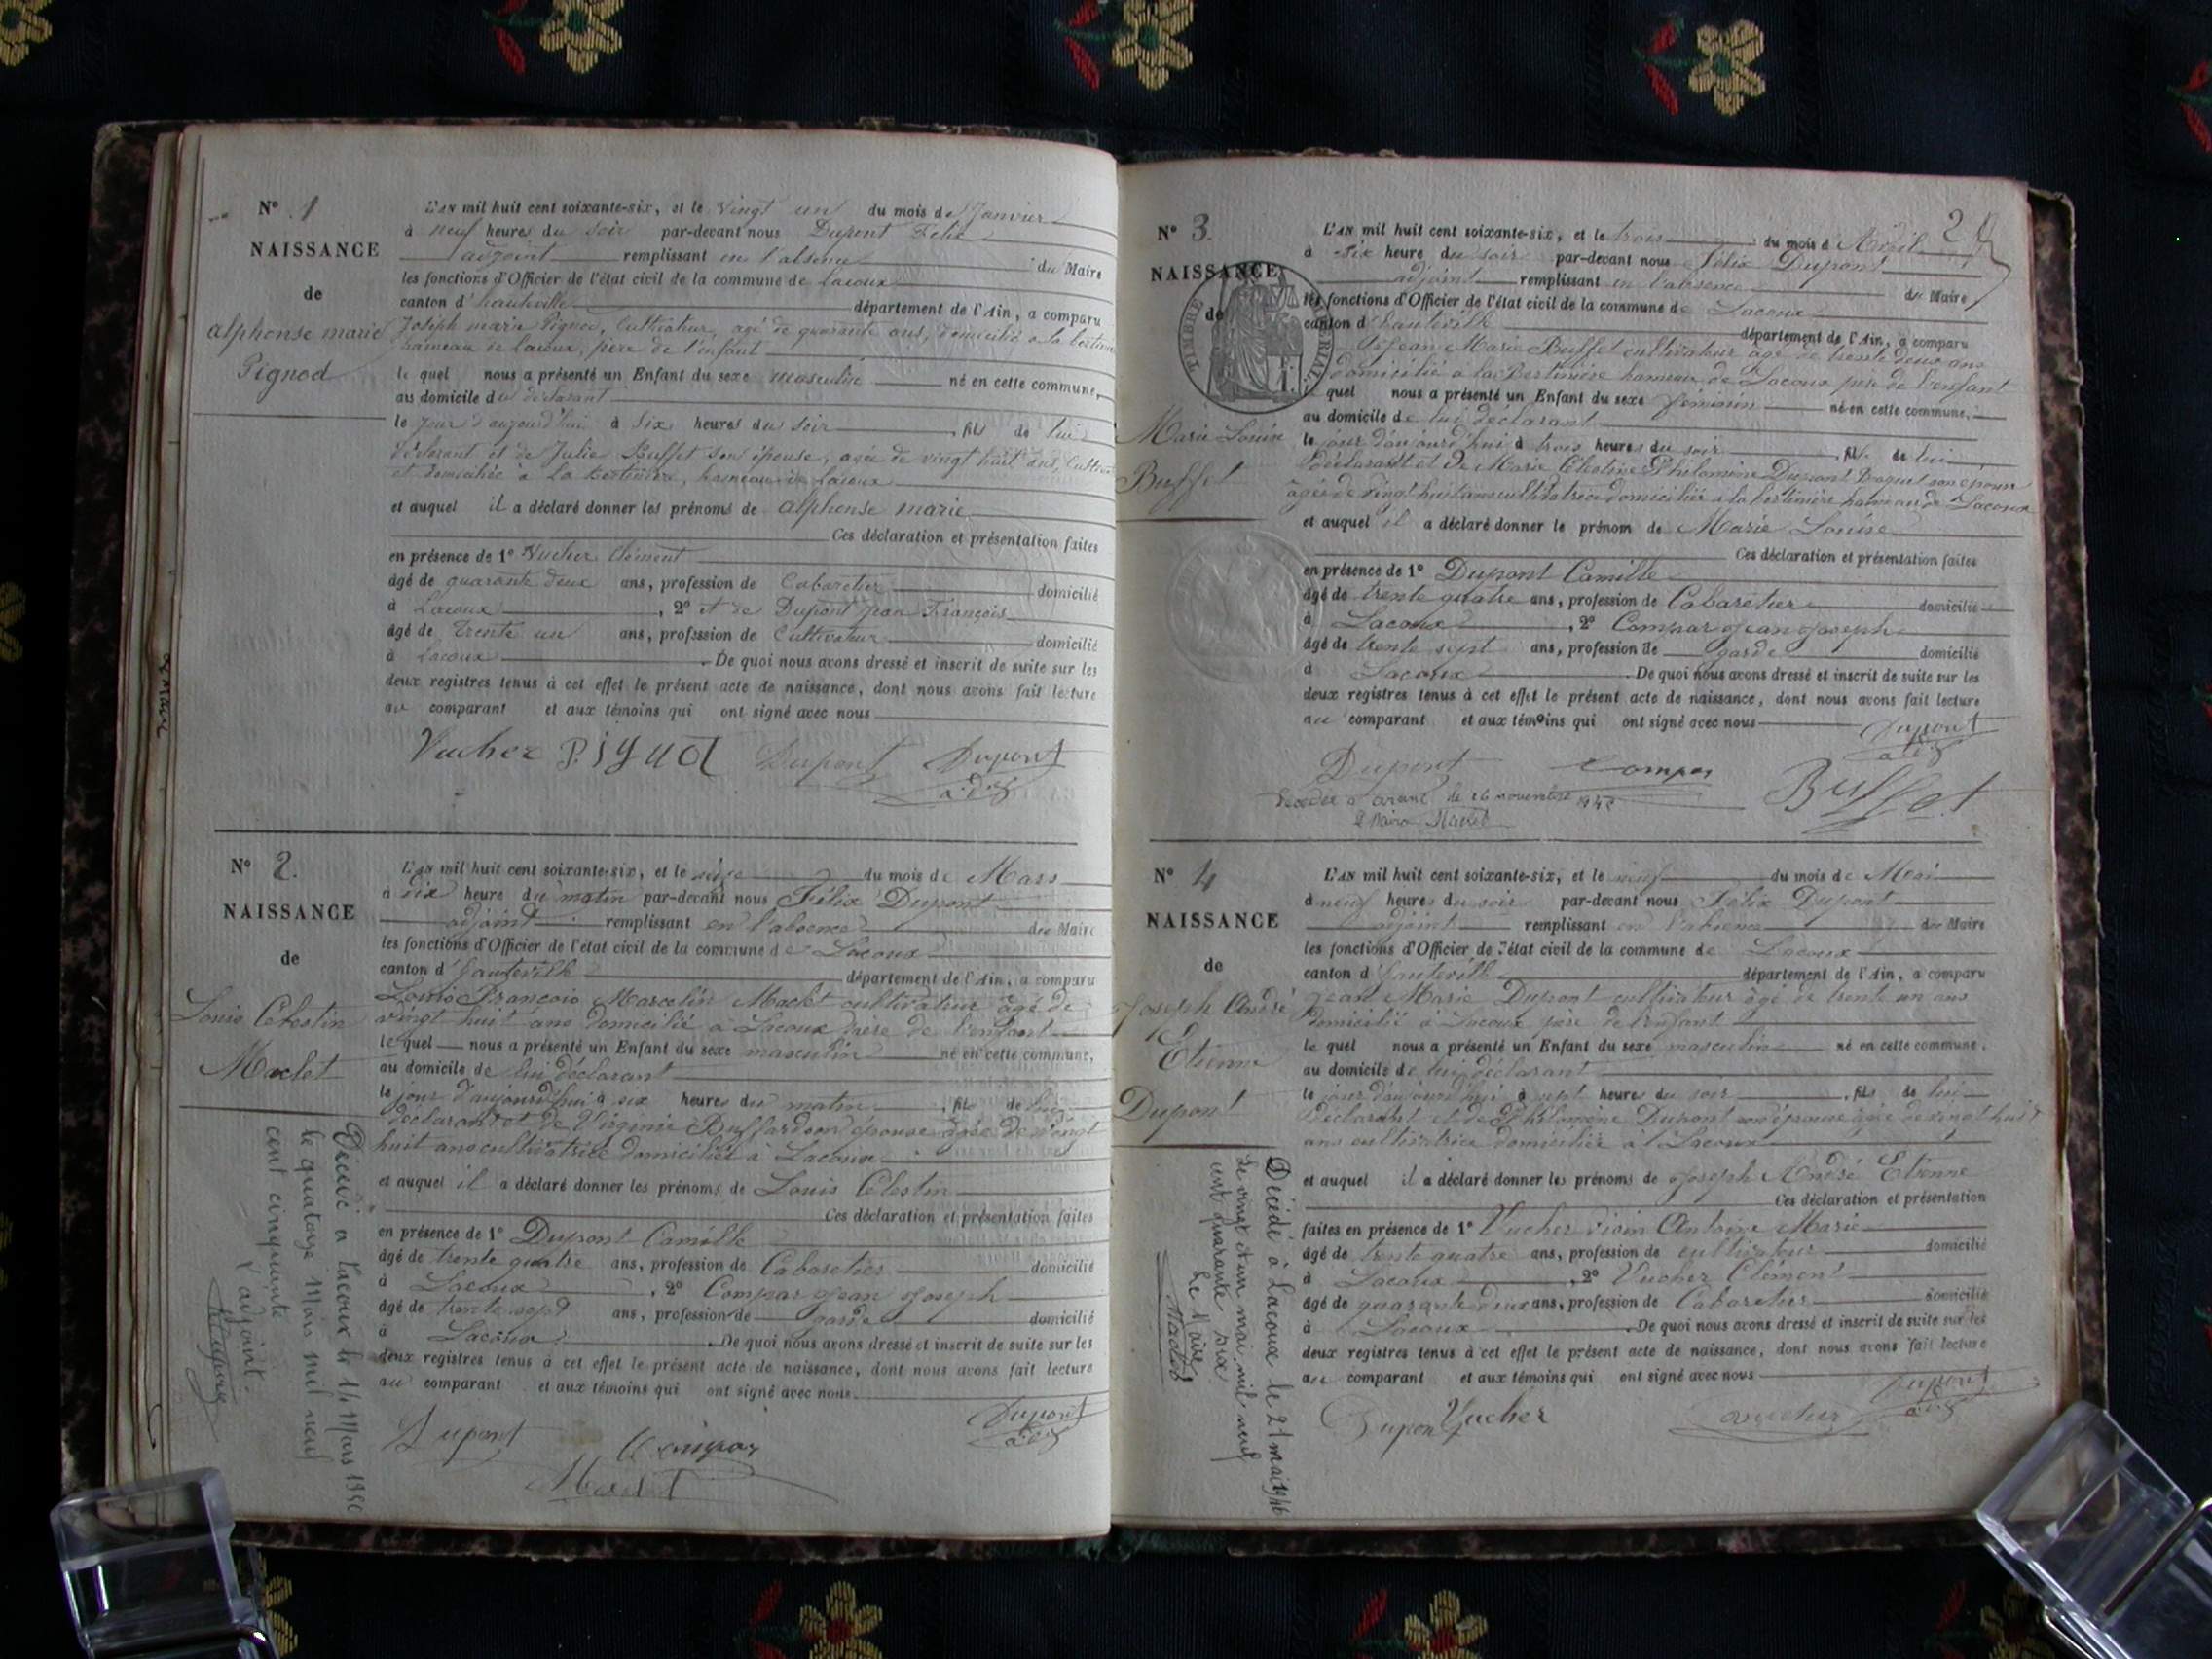 N° 1
NAISSANCE
de
alphonse marie
Pignod
L'AN mil huit cent soixante-six, et le vingt un du mois de Janvier
à neuf heures du soir par-devant nous Dupont Félix
adjoint remplissant en l'absence du Maire
les fonctions d'Officier de l'état civil de la commune de Lacoux
canton d'hauteville département de l'Ain, a comparu
Joseph marie Pignod, Cultivateur, agé de quarante ans, domicilié a la bertinière
hameau de lacoux, père de l'enfant
le quel nous a présenté un Enfant du sexe masculin né en cette commune,
au domicile du déclarant
le jour d'aujourd'hui à six heures du soir, fils de lui
déclarant et de Julie Buffet son épouse, agée de vingt huit ans, Cultiv
et domiciliée à La Bertinière, hameau de lacoux
et auquel il a déclaré donner les prénoms de alphonse marie
Ces déclaration et présentation faites
en présence de 1° Vucher Clément
âgé de quarante deux ans, profession de Cabaretier domicilié
à Lacoux, 2° et de Dupont jean François
âgé de trente un ans, profession de Cultivateur domicilié
à Lacoux. De quoi nous avons dressé et inscrit de suite sur les
deux registres tenus à cet effet le présent acte de naissance, dont nous avons fait lecture
au comparant et aux témoins qui ont signé avec nous
Vucher Pignod Dupont Dupont
adj
N° 2.
NAISSANCE
de
Louis Célestin
Maclet
L'AN mil huit cent soixante-six, et le seize du mois de Mars
à dix heure du matin par-devant nous Félix Dupont
adjoint remplissant en l'absence du Maire
les fonctions d'Officier de l'état civil de la commune de Lacoux
canton d'hauteville département de l'Ain, a comparu
Louis François Marcelin Maclet cultivateur âgé de
vingt huit ans domicilié à Lacoux père de l'enfant
le quel nous a présenté un Enfant du sexe masculin né en cette commune,
au domicile de lui déclarant
le jour d'aujourd'hui à six heures du matin, fils de lui
déclarant et de Virginie Buffard son épouse âgée de vingt
huit ans cultivatrice domiciliée à Lacoux
et auquel il a déclaré donner les prénoms de Louis Célestin
Ces déclaration et présentation faites
en présence de 1° Dupont Camille
âgé de trente quatre ans, profession de Cabaretier domicilié
à Lacoux, 2° Compar Jean Joseph
âgé de trente sept ans, profession de garde domicilié
à Lacoux. De quoi nous avons dressé et inscrit de suite sur les
deux registres tenus à cet effet le présent acte de naissance, dont nous avons fait lecture
au comparant et aux témoins qui ont signé avec nous.
Dupont
adj
Dupont Compar
Maclet
Décédé à Lacoux le 14 Mars 1950
le quatorze Mars mil neuf
cent cinquante
L'adjoint.
2
N° 3.
NAISSANCE
de
TIMBRE IMPÉRIAL
Marie Louise
Buffet
L'AN mil huit cent soixante-six, et le trois du mois d'Avril
à six heure du soir par-devant nous Félix Dupont
adjoint remplissant en l'absence du Maire
les fonctions d'Officier de l'état civil de la commune de Lacoux
canton d'hauteville département de l'Ain, a comparu
Jean Marie Buffet cultivateur âgé de trente deux ans
domicilié a la Bertinière hameau de Lacoux père de l'enfant
quel nous a présenté un Enfant du sexe féminin né en cette commune,
au domicile de lui déclarant
le jour d'aujourd'hui à trois heures du soir, fil de lui
déclarant et de Marie Philomène Dupont son épouse
âgée de vingt huit ans cultivatrice domiciliée a la bertinière hameau de Lacoux
et auquel il a déclaré donner le prénom de Marie Louise
Ces déclaration et présentation faites
en présence de 1° Dupont Camille
âgé de trente quatre ans, profession de Cabaretier domicilié
à Lacoux, 2° Compar Jean Joseph
âgé de trente sept ans, profession de garde domicilié
à Lacoux. De quoi nous avons dressé et inscrit de suite sur les
deux registres tenus à cet effet le présent acte de naissance, dont nous avons fait lecture
au comparant et aux témoins qui ont signé avec nous
Dupont
adj
Dupont Compar Buffet
Décédée à Aranc le 26 novembre
le Maire Maclet
N° 4
NAISSANCE
de
Joseph André
Etienne
Dupont
L'AN mil huit cent soixante-six, et le neuf du mois de Mai
à neuf heures du soir par-devant nous Félix Dupont
adjoint remplissant en l'absence du Maire
les fonctions d'Officier de l'état civil de la commune de Lacoux
canton d'hauteville département de l'Ain, a comparu
Jean Marie Dupont cultivateur âgé de trente un ans
domicilié à Lacoux père de l'enfant
le quel nous a présenté un Enfant du sexe masculin né en cette commune,
au domicile de lui déclarant
le jour d'aujourd'hui à sept heure du soir, fils de lui
déclarant et de Philomène Dupont son épouse âgée de vingt huit
ans cultivatrice domiciliée à Lacoux
et auquel il a déclaré donner les prénoms de Joseph André Etienne
Ces déclaration et présentation
faites en présence de 1° Vucher Antoine Marie
âgé de trente quatre ans, profession de cultivateur domicilié
à Lacoux, 2° Vucher Clément
âgé de quarante deux ans, profession de Cabaretier domicilié
à Lacoux. De quoi nous avons dressé et inscrit de suite sur les
deux registres tenus à cet effet le présent acte de naissance, dont nous avons fait lecture
au comparant et aux témoins qui ont signé avec nous
Dupont
adj
Dupont Vucher Vucher
Décédé à Lacoux le 21 mai 1946
le vingt et un mai mil neuf
cent quarante six
Le Maire
Maclet